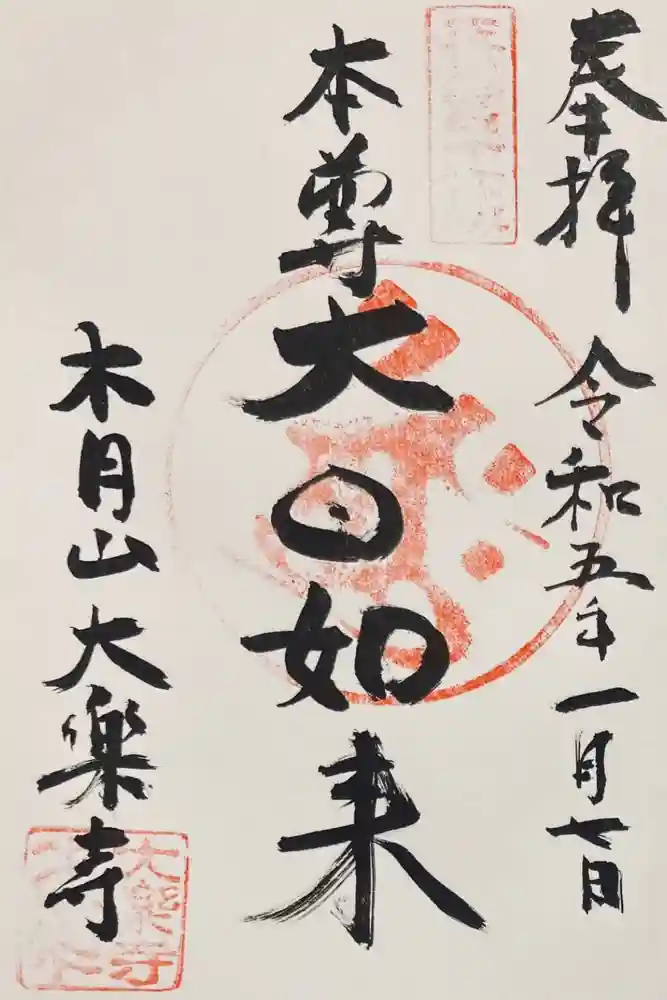 奉拝 令和五年一月七日
本尊 大日如来
木月山 大樂寺
大樂寺